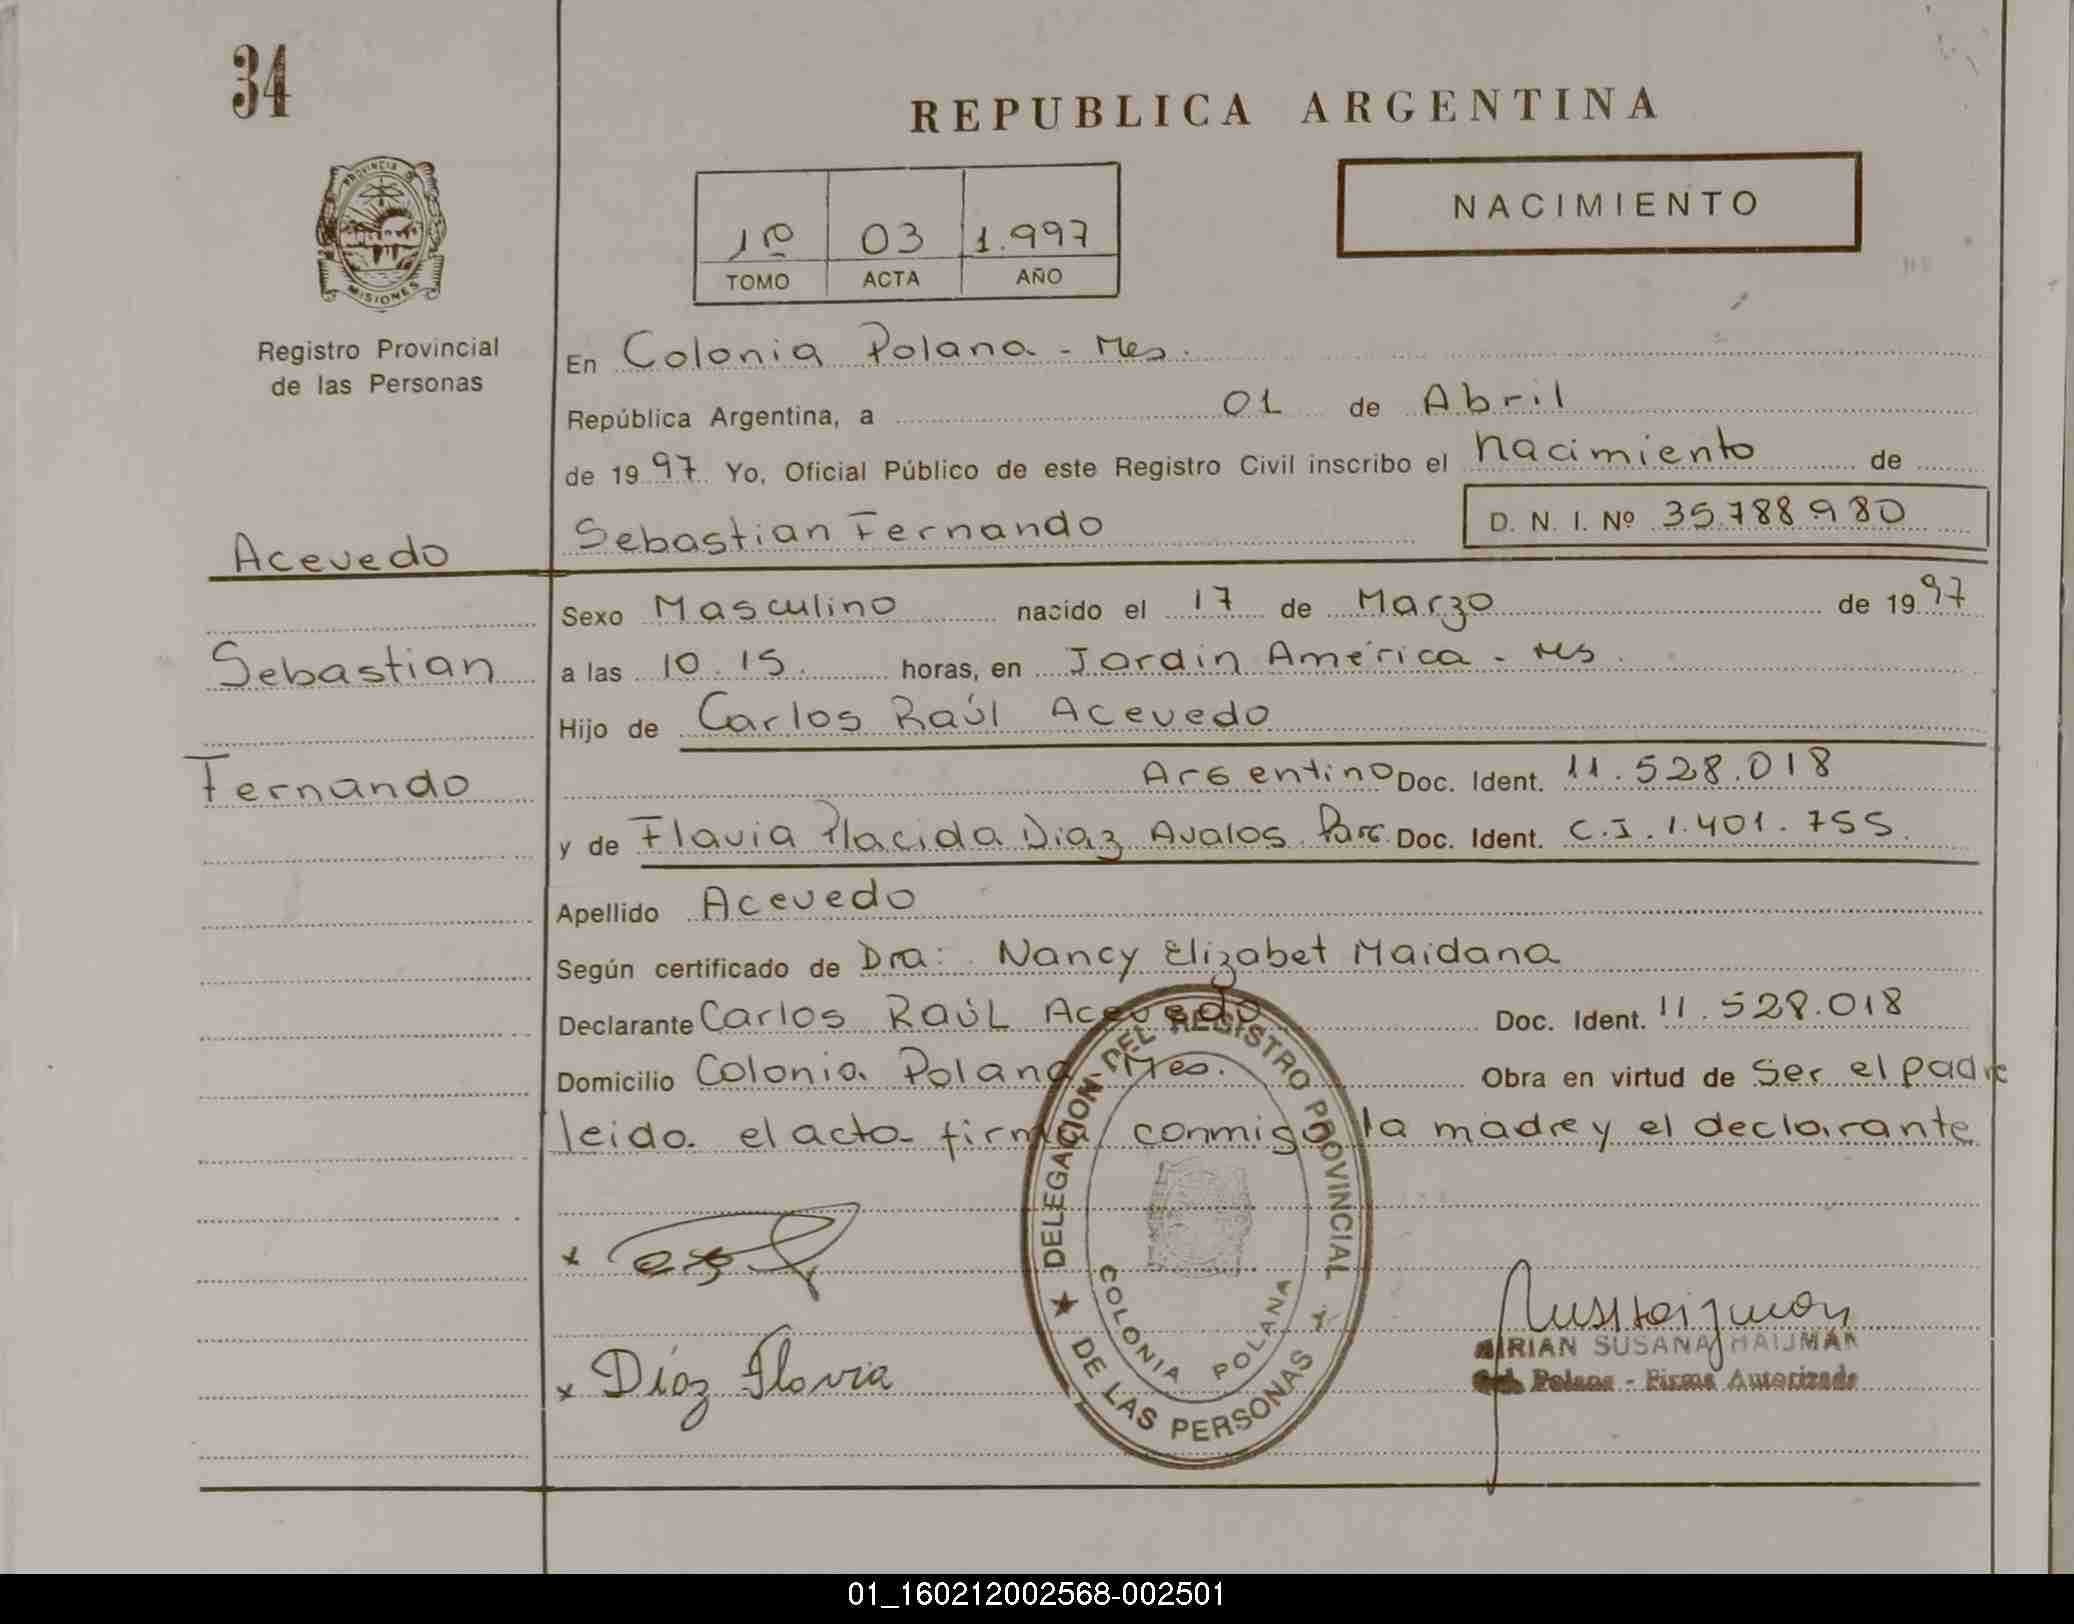 34
REPUBLICA ARGENTINA
PROVINCIA DE
MISIONES
Registro Provincial
de las Personas
1º 03 1.997
TOMO ACTA AÑO
NACIMIENTO
En Colonia Polana - Mes.
República Argentina, a 01 de Abril
de 1997 Yo, Oficial Público de este Registro Civil inscribo el nacimiento de
Acevedo
Sebastian Fernando D. N. I. Nº 35.788980
Sexo Masculino nacido el 17 de Marzo de 1997
Sebastian
a las 10.15. horas, en Jardin América - Mes.
Hijo de Carlos Raúl Acevedo
Fernando
Argentino Doc. Ident. 11.528.018
y de Flavia Placida Diaz Avalos Parg. Doc. Ident. C.I. 1.401.755.
Apellido Acevedo
Según certificado de Dra: Nancy Elizabet Maidana
Declarante Carlos Raúl Acevedo Doc. Ident. 11.528.018
Domicilio Colonia Polana Mes. Obra en virtud de Ser el padre
leido el acto firman conmigo la madre y el declarante
DELEGACION DEL REGISTRO PROVINCIAL
DE LAS PERSONAS
COLONIA POLANA
x
x Díaz Flavia
MIRIAN SUSANA HAIJMAN
Col. Polana - Firma Autorizada
01_160212002568-002501